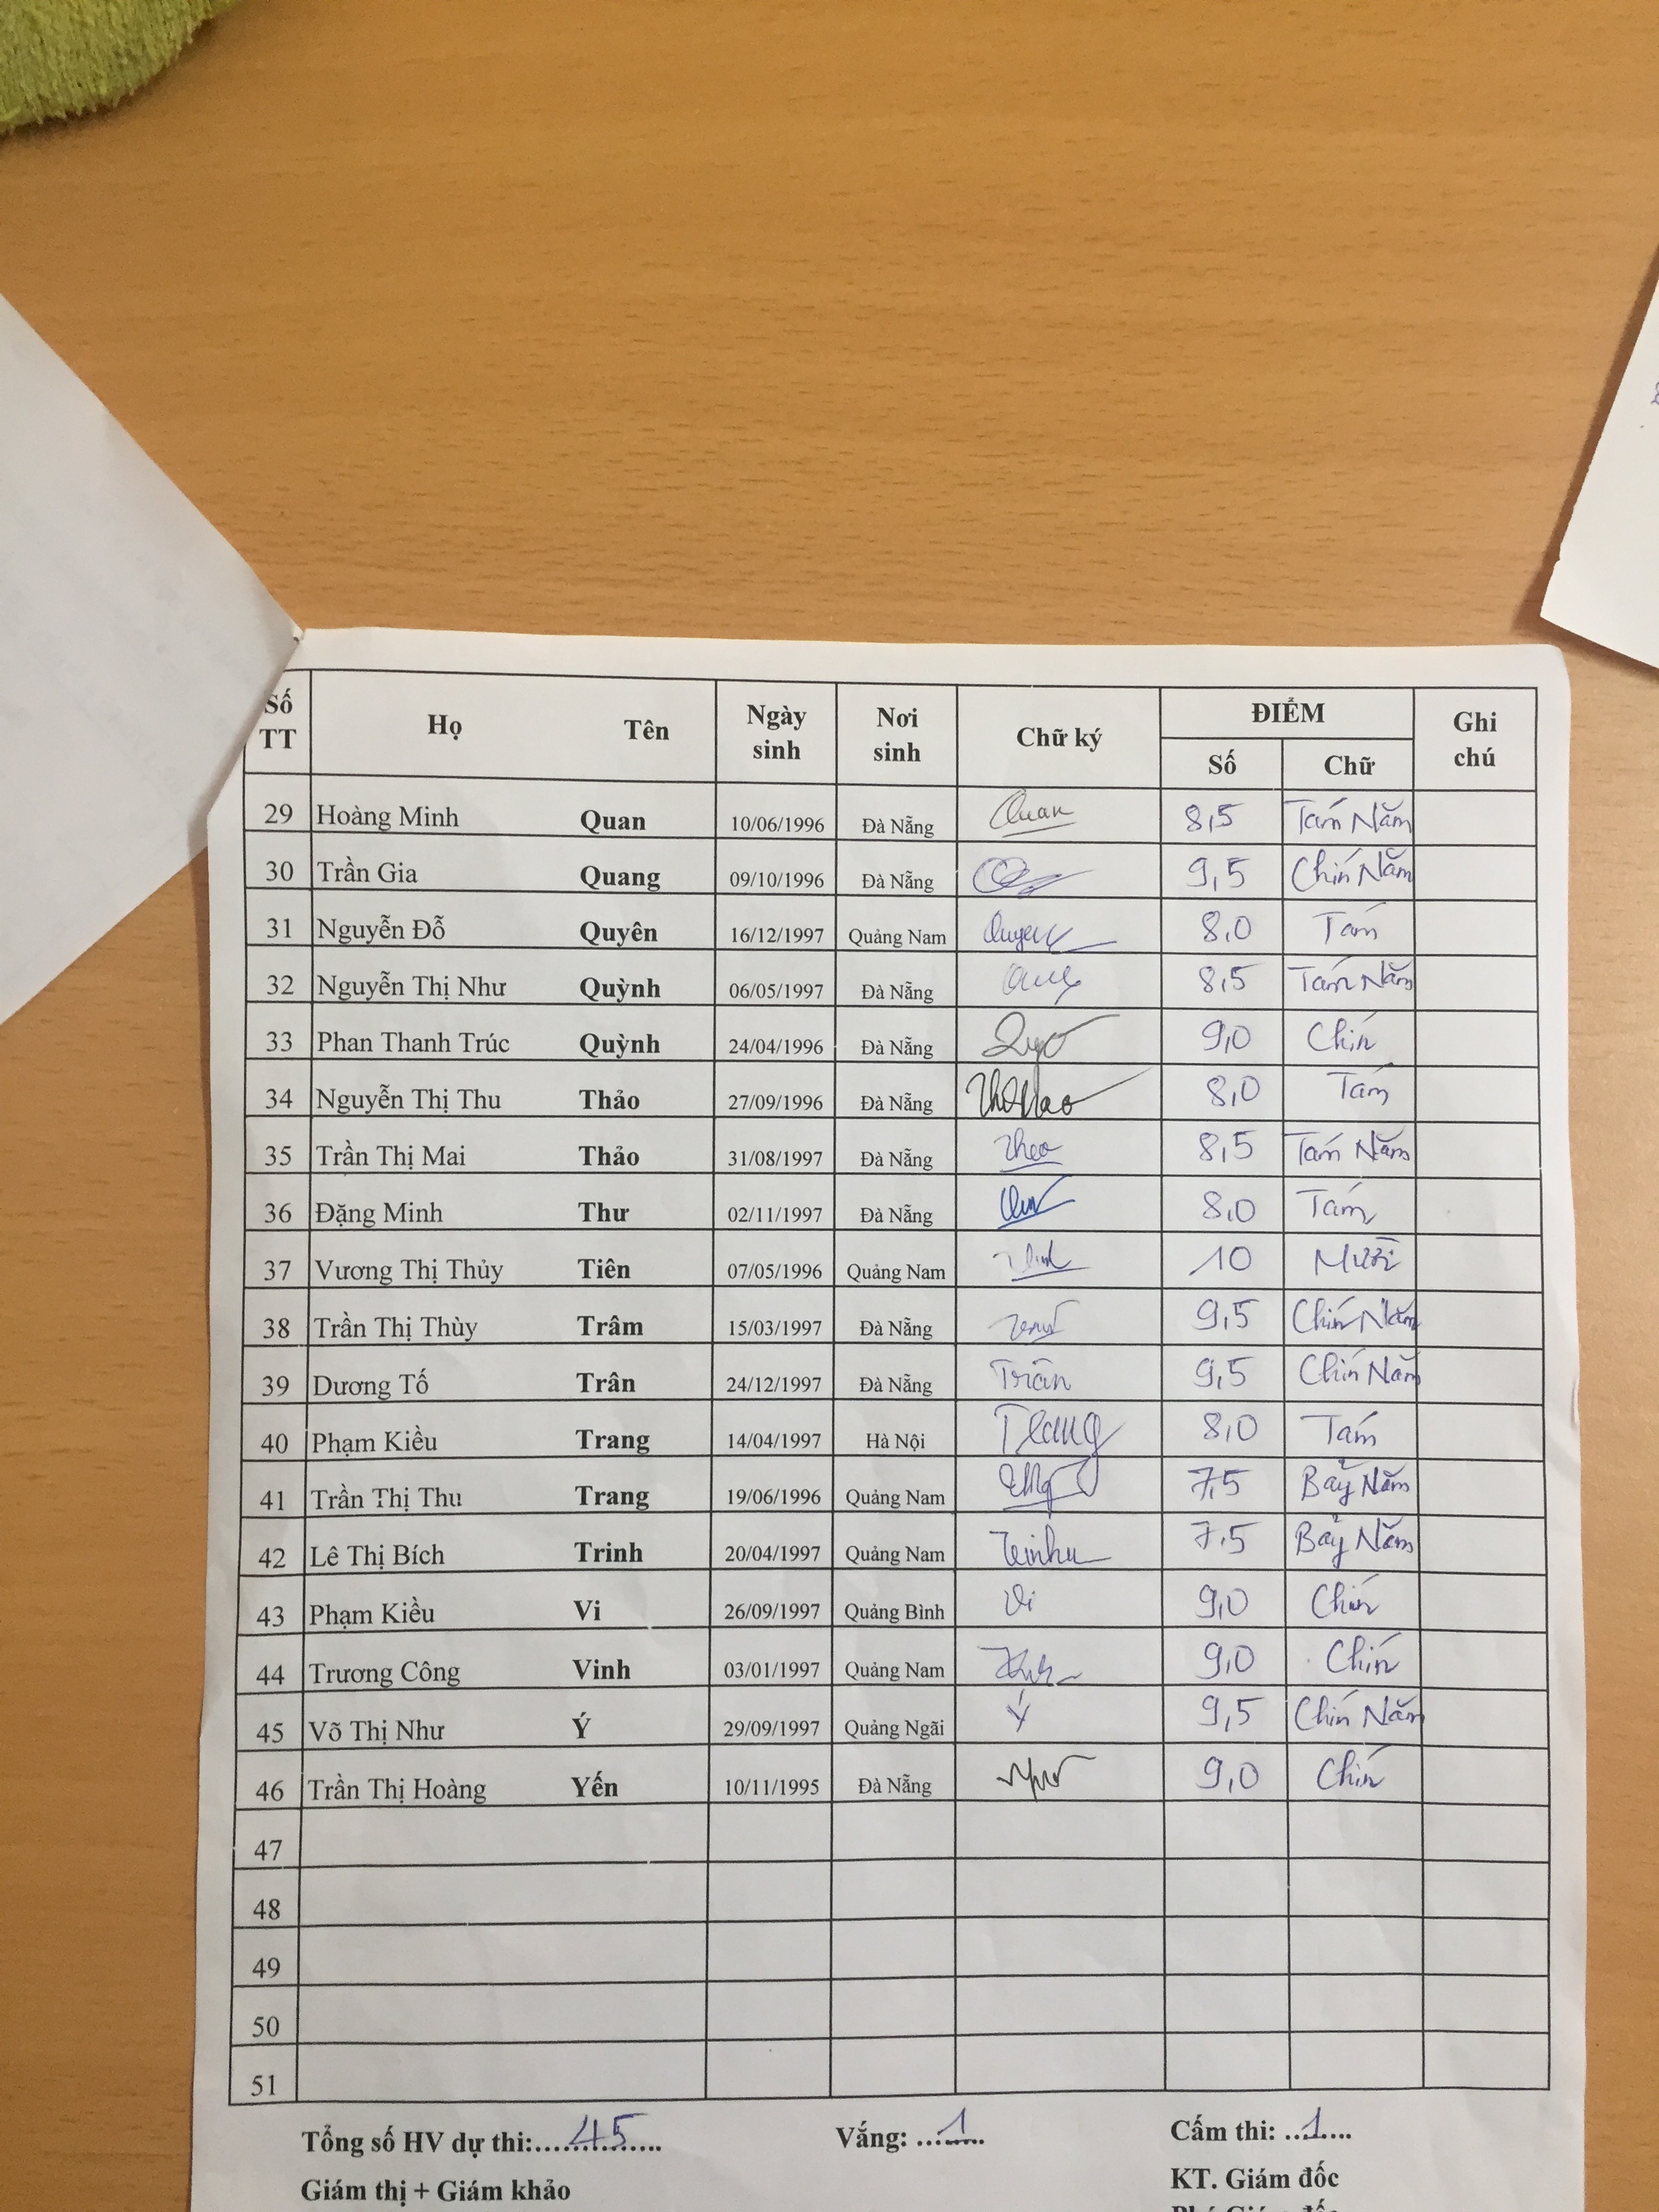 Số TT Họ Tên Ngày sinh Nơi sinh Chữ ký ĐIỂM Ghi chú
Số Chữ
29 Hoàng Minh Quan 10/06/1996 Đà Nẵng Quan 8,5 Tám Năm
30 Trần Gia Quang 09/10/1996 Đà Nẵng 9,5 Chín Năm
31 Nguyễn Đỗ Quyên 16/12/1997 Quảng Nam Quyen 8,0 Tám
32 Nguyễn Thị Như Quỳnh 06/05/1997 Đà Nẵng 8,5 Tám Năm
33 Phan Thanh Trúc Quỳnh 24/04/1996 Đà Nẵng 9,0 Chín
34 Nguyễn Thị Thu Thảo 27/09/1996 Đà Nẵng 8,0 Tám
35 Trần Thị Mai Thảo 31/08/1997 Đà Nẵng Thao 8,5 Tám Năm
36 Đặng Minh Thư 02/11/1997 Đà Nẵng 8,0 Tám
37 Vương Thị Thủy Tiên 07/05/1996 Quảng Nam 10 Mười
38 Trần Thị Thùy Trâm 15/03/1997 Đà Nẵng 9,5 Chín Năm
39 Dương Tố Trân 24/12/1997 Đà Nẵng Trân 9,5 Chín Năm
40 Phạm Kiều Trang 14/04/1997 Hà Nội Trang 8,0 Tám
41 Trần Thị Thu Trang 19/06/1996 Quảng Nam 7,5 Bảy Năm
42 Lê Thị Bích Trinh 20/04/1997 Quảng Nam Trinh 7,5 Bảy Năm
43 Phạm Kiều Vi 26/09/1997 Quảng Bình Vi 9,0 Chín
44 Trương Công Vinh 03/01/1997 Quảng Nam 9,0 Chín
45 Võ Thị Như Ý 29/09/1997 Quảng Ngãi Ý 9,5 Chín Năm
46 Trần Thị Hoàng Yến 10/11/1995 Đà Nẵng 9,0 Chín
47
48
49
50
51
Tổng số HV dự thi:.....45..... Vắng: ...1... Cấm thi: ...1...
Giám thị + Giám khảo KT. Giám đốc